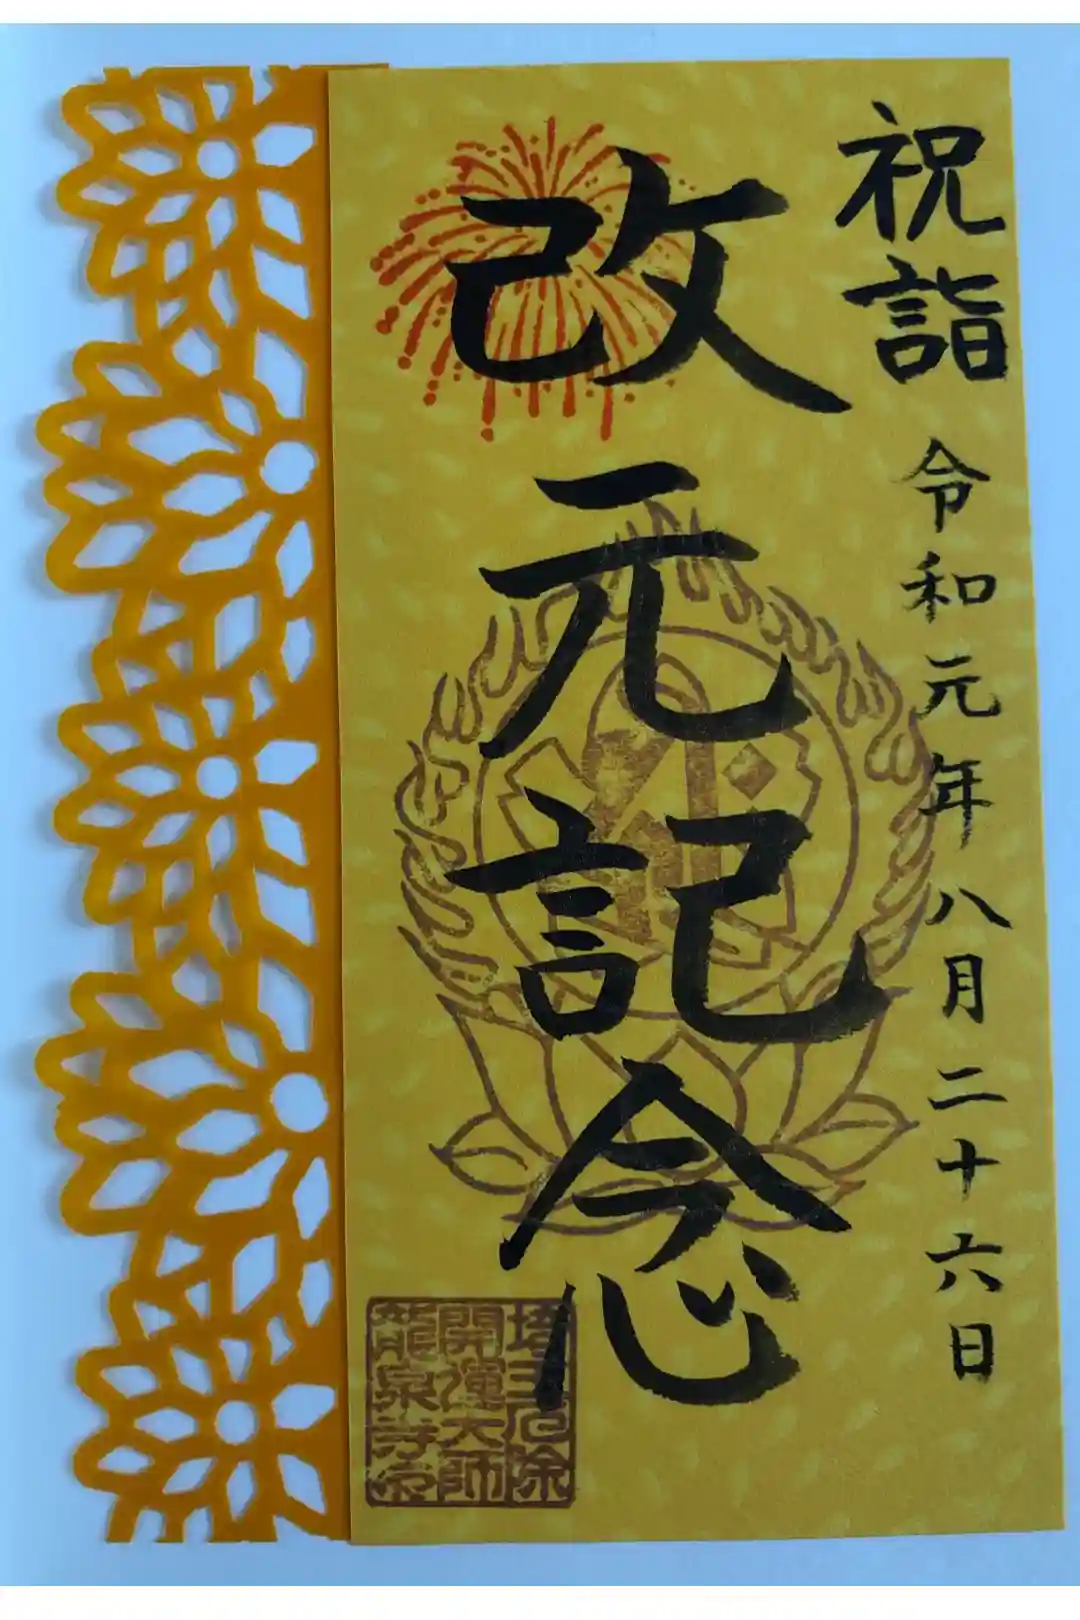 祝詣 令和元年 八月二十六日
改元記念
塔王厄除
開運大師
龍泉寺